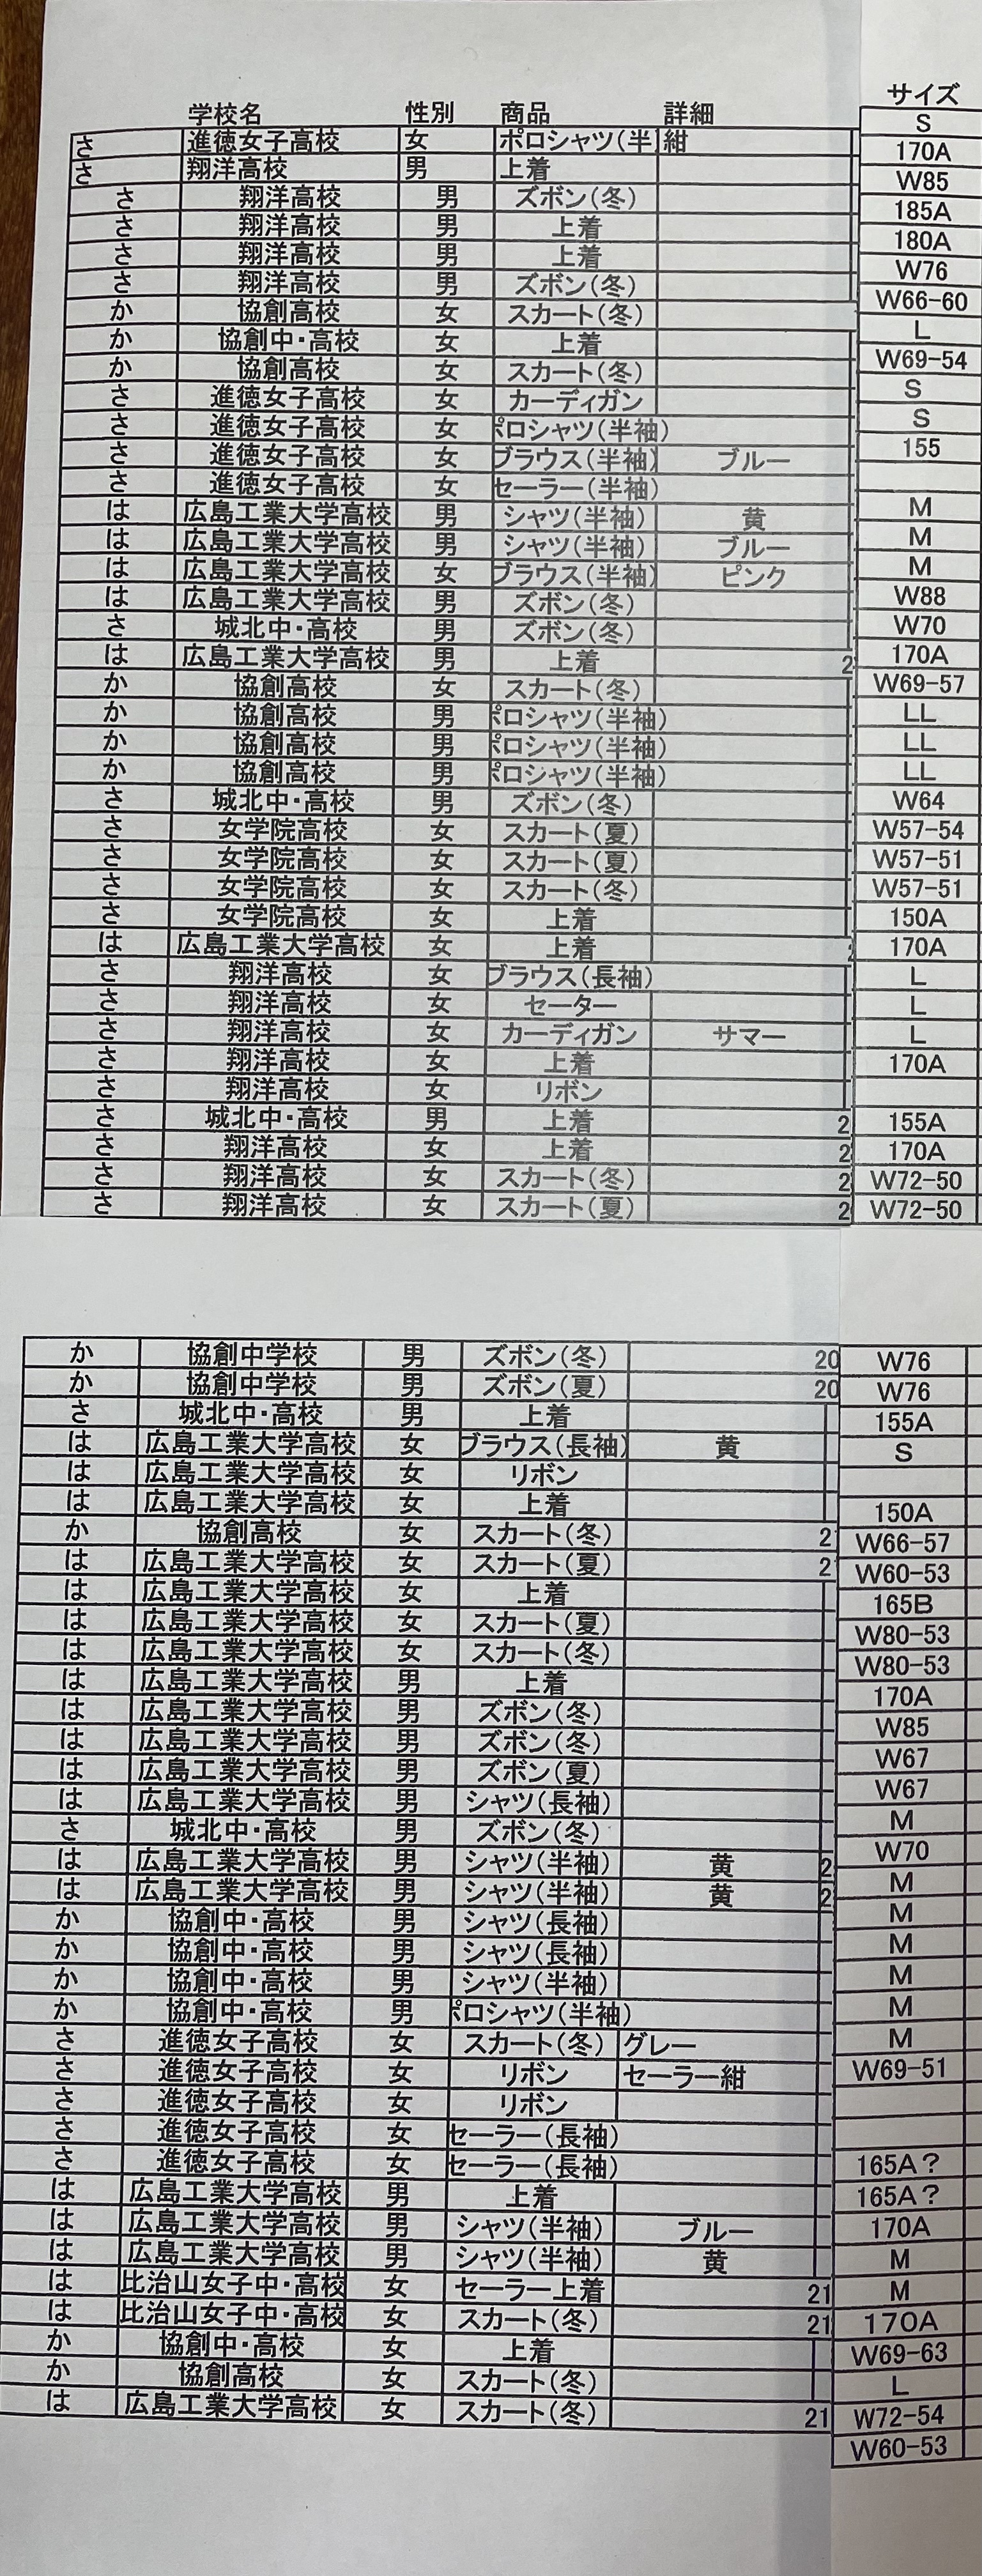 学校名 性別 商品 詳細 サイズ
さ 進徳女子高校 女 ポロシャツ(半 紺 S
さ 翔洋高校 男 上着 170A
さ 翔洋高校 男 ズボン(冬) W85
さ 翔洋高校 男 上着 185A
さ 翔洋高校 男 上着 180A
さ 翔洋高校 男 ズボン(冬) W76
か 協創高校 女 スカート(冬) W66-60
か 協創中・高校 女 上着 L
か 協創高校 女 スカート(冬) W69-54
さ 進徳女子高校 女 カーディガン S
さ 進徳女子高校 女 ポロシャツ(半袖) S
さ 進徳女子高校 女 ブラウス(半袖) ブルー 155
さ 進徳女子高校 女 セーラー(半袖)
は 広島工業大学高校 男 シャツ(半袖) 黄 M
は 広島工業大学高校 男 シャツ(半袖) ブルー M
は 広島工業大学高校 女 ブラウス(半袖) ピンク M
は 広島工業大学高校 男 ズボン(冬) W88
さ 城北中・高校 男 ズボン(冬) W70
は 広島工業大学高校 男 上着 2 170A
か 協創高校 女 スカート(冬) W69-57
か 協創高校 男 ポロシャツ(半袖) LL
か 協創高校 男 ポロシャツ(半袖) LL
か 協創高校 男 ポロシャツ(半袖) LL
さ 城北中・高校 男 ズボン(冬) W64
さ 女学院高校 女 スカート(夏) W57-54
さ 女学院高校 女 スカート(夏) W57-51
さ 女学院高校 女 スカート(冬) W57-51
さ 女学院高校 女 上着 150A
は 広島工業大学高校 女 上着 170A
さ 翔洋高校 女 ブラウス(長袖) L
さ 翔洋高校 女 セーター L
さ 翔洋高校 女 カーディガン サマー L
さ 翔洋高校 女 上着 170A
さ 翔洋高校 女 リボン
さ 城北中・高校 男 上着 2 155A
さ 翔洋高校 女 上着 2 170A
さ 翔洋高校 女 スカート(冬) 2 W72-50
さ 翔洋高校 女 スカート(夏) 2 W72-50
か 協創中学校 男 ズボン(冬) 20 W76
か 協創中学校 男 ズボン(夏) 20 W76
さ 城北中・高校 男 上着 155A
は 広島工業大学高校 女 ブラウス(長袖) 黄 S
は 広島工業大学高校 女 リボン
は 広島工業大学高校 女 上着 150A
か 協創高校 女 スカート(冬) 2 W66-57
は 広島工業大学高校 女 スカート(夏) 2 W60-53
は 広島工業大学高校 女 上着 165B
は 広島工業大学高校 女 スカート(夏) W80-53
は 広島工業大学高校 女 スカート(冬) W80-53
は 広島工業大学高校 男 上着 170A
は 広島工業大学高校 男 ズボン(冬) W85
は 広島工業大学高校 男 ズボン(冬) W67
は 広島工業大学高校 男 ズボン(夏) W67
は 広島工業大学高校 男 シャツ(長袖) M
さ 城北中・高校 男 ズボン(冬) W70
は 広島工業大学高校 男 シャツ(半袖) 黄 2 M
は 広島工業大学高校 男 シャツ(半袖) 黄 2 M
か 協創中・高校 男 シャツ(長袖) M
か 協創中・高校 男 シャツ(長袖) M
か 協創中・高校 男 シャツ(半袖) M
か 協創中・高校 男 ポロシャツ(半袖) M
さ 進徳女子高校 女 スカート(冬) グレー W69-51
さ 進徳女子高校 女 リボン セーラー紺
さ 進徳女子高校 女 リボン
さ 進徳女子高校 女 セーラー(長袖) 165A?
さ 進徳女子高校 女 セーラー(長袖) 165A?
は 広島工業大学高校 男 上着 170A
は 広島工業大学高校 男 シャツ(半袖) ブルー M
は 広島工業大学高校 男 シャツ(半袖) 黄 M
は 比治山女子中・高校 女 セーラー上着 21 170A
は 比治山女子中・高校 女 スカート(冬) 21 W69-63
か 協創中・高校 女 上着 L
か 協創高校 女 スカート(冬) W72-54
は 広島工業大学高校 女 スカート(冬) 21 W60-53